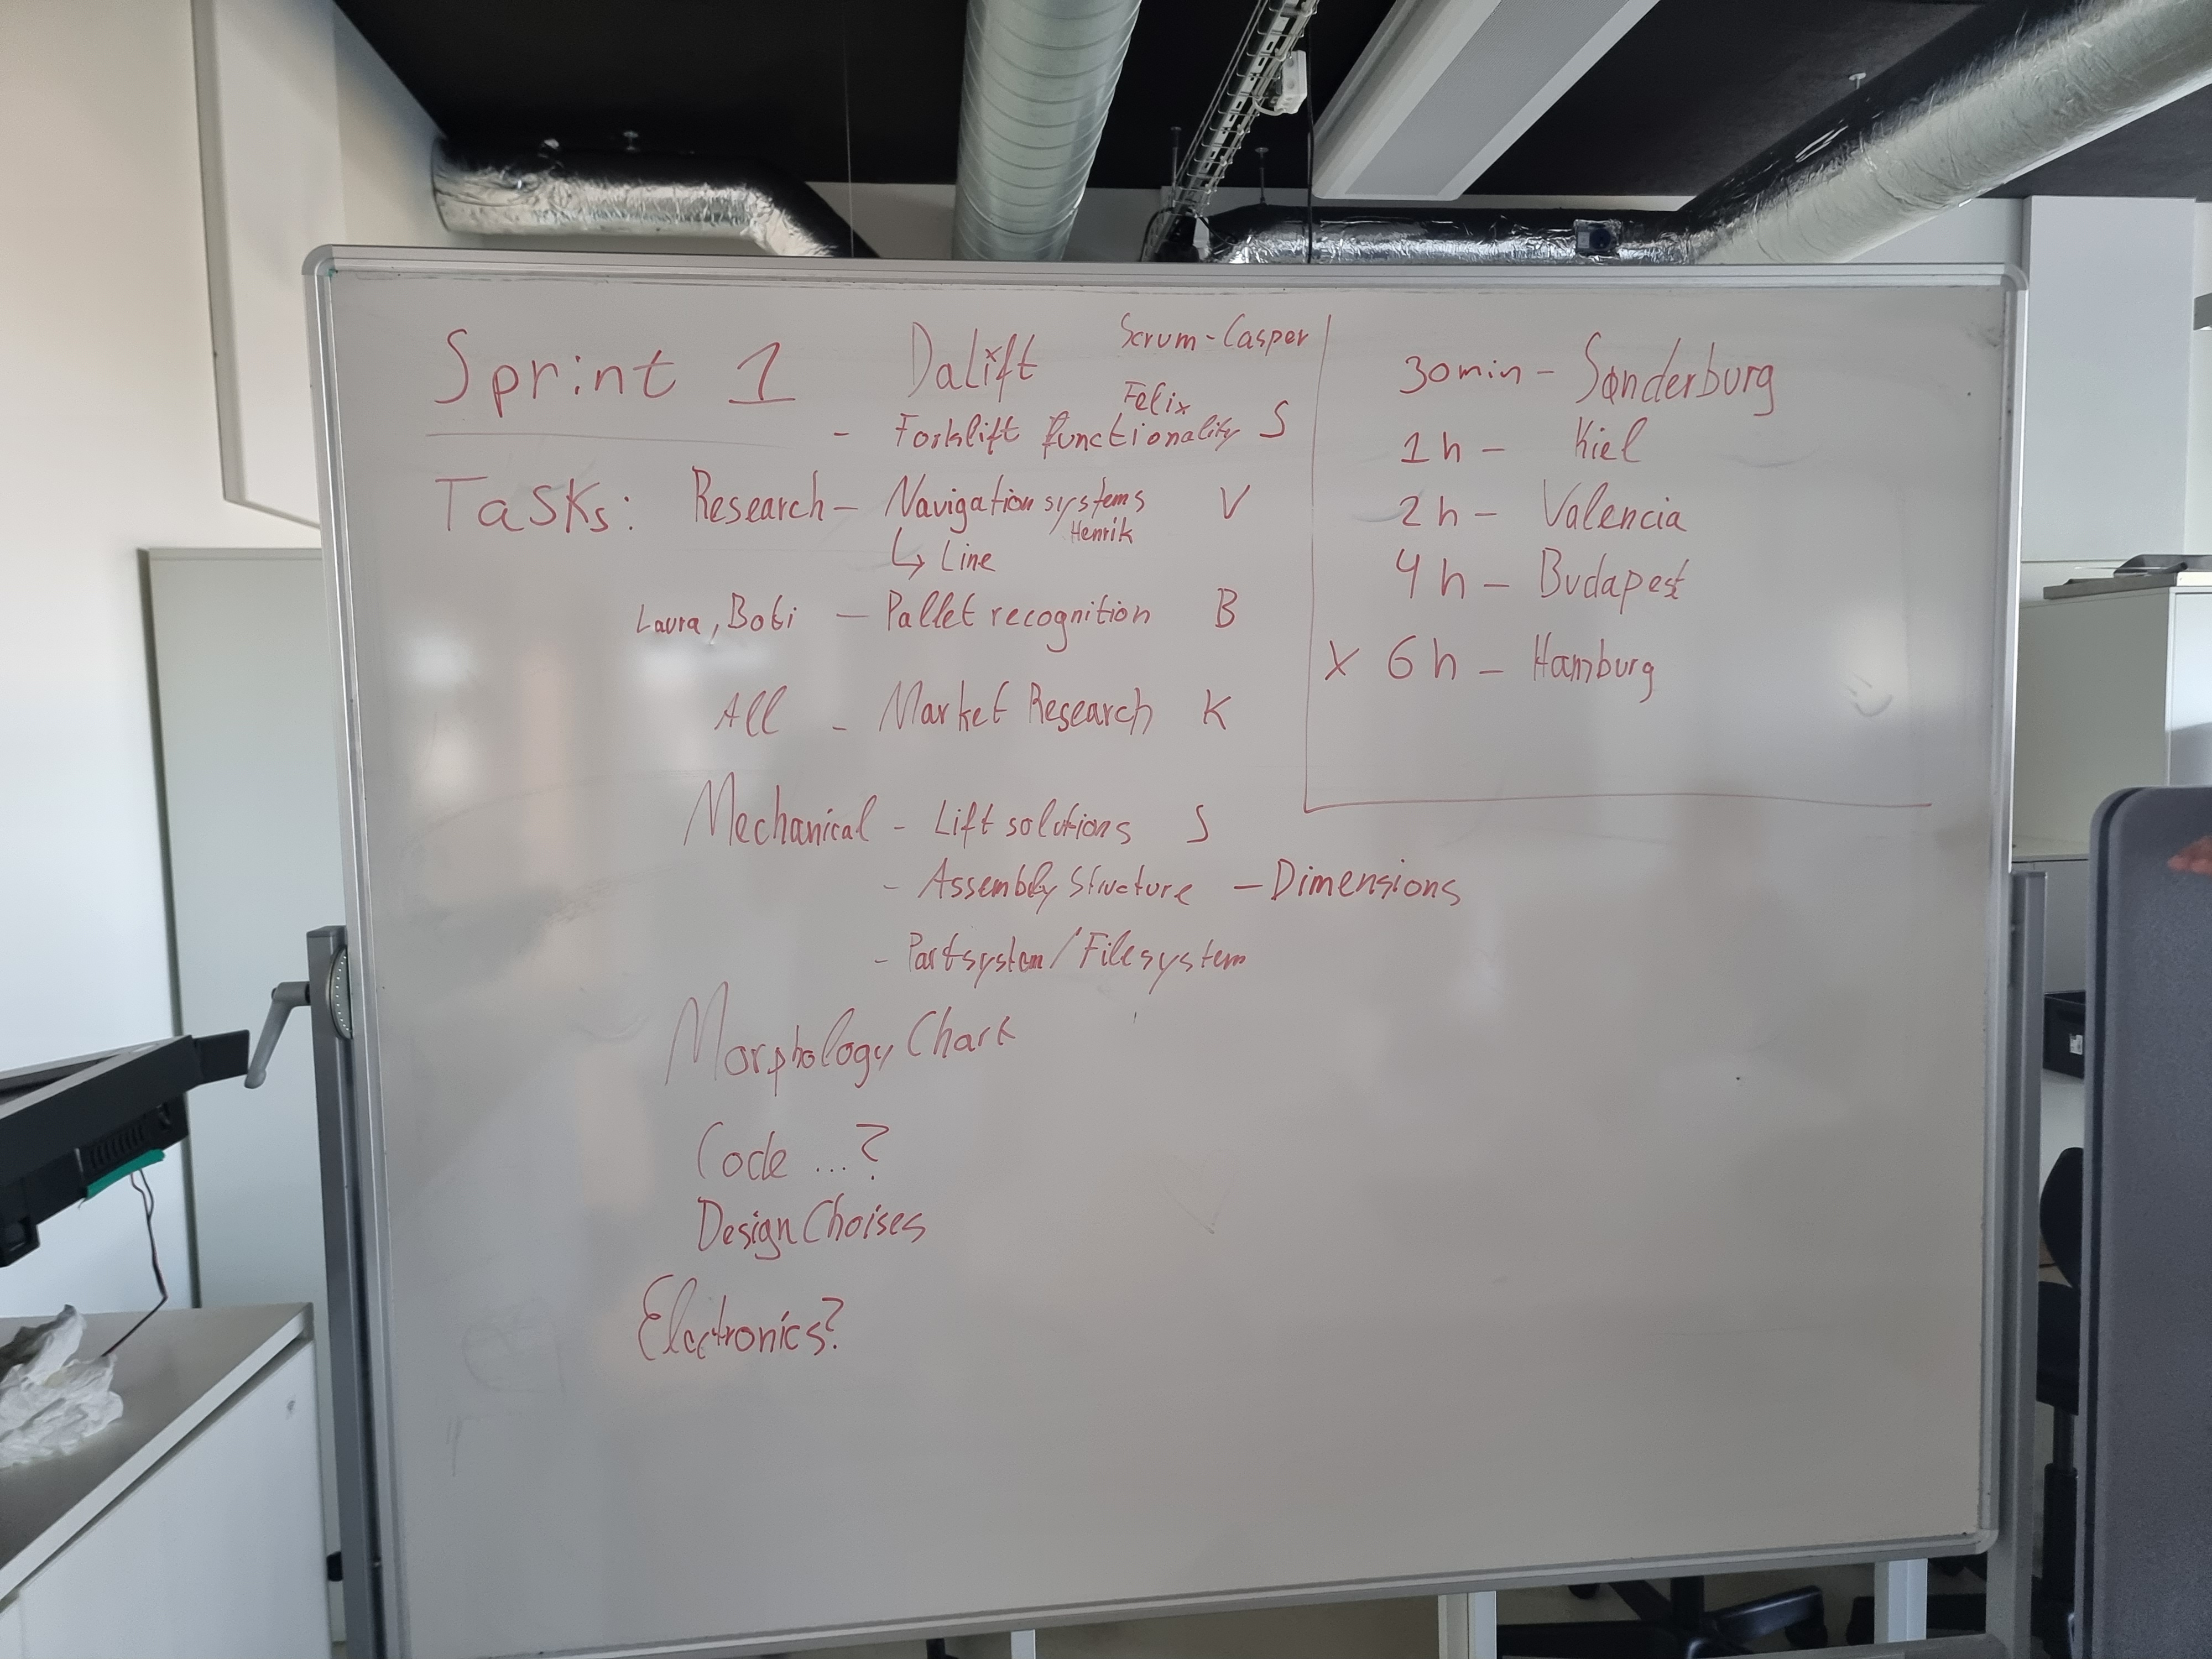 Sprint 1
Dalift
Scrum - Casper
Felix
- Forklift functionality S
Tasks: Research - Navigation systems V
Henrik
↳ Line
Laura, Bobi - Pallet recognition B
All - Market Research K
Mechanical - Lift solutions S
- Assembly Structure - Dimensions
- Partsystem / Filesystem
Morphology Chart
Code ...?
Design Choises
Electronics?
30min - Sønderburg
1h - Kiel
2h - Valencia
4h - Budapest
X 6h - Hamburg